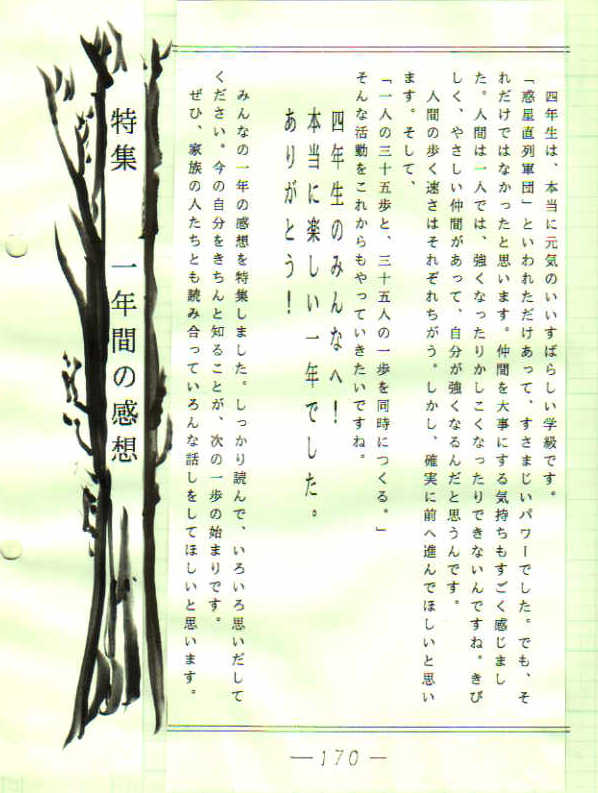 四年生は、本当に元気のいいすばらしい学級です。
「惑星直列軍団」といわれただけあって、すさまじいパワーでした。でも、そ
れだけではなかったと思います。仲間を大事にする気持ちもすごく感じまし
た。人間は一人では、強くなったりかしこくなったりできないんですね。きび
しく、やさしい仲間があって、自分が強くなるんだと思うんです。
人間の歩く速さはそれぞれちがう。しかし、確実に前へ進んでほしいと思い
ます。そして、
「一人の三十五歩と、三十五人の一歩を同時につくる。」
そんな活動をこれからもやっていきたいですね。
四年生のみんなへ！
本当に楽しい一年でした。
ありがとう！
みんなの一年の感想を特集しました。しっかり読んで、いろいろ思いだして
ください。今の自分をきちんと知ることが、次の一歩の始まりです。
ぜひ、家族の人たちとも読み合っていろんな話しをしてほしいと思います。
特集　一年間の感想
—170—